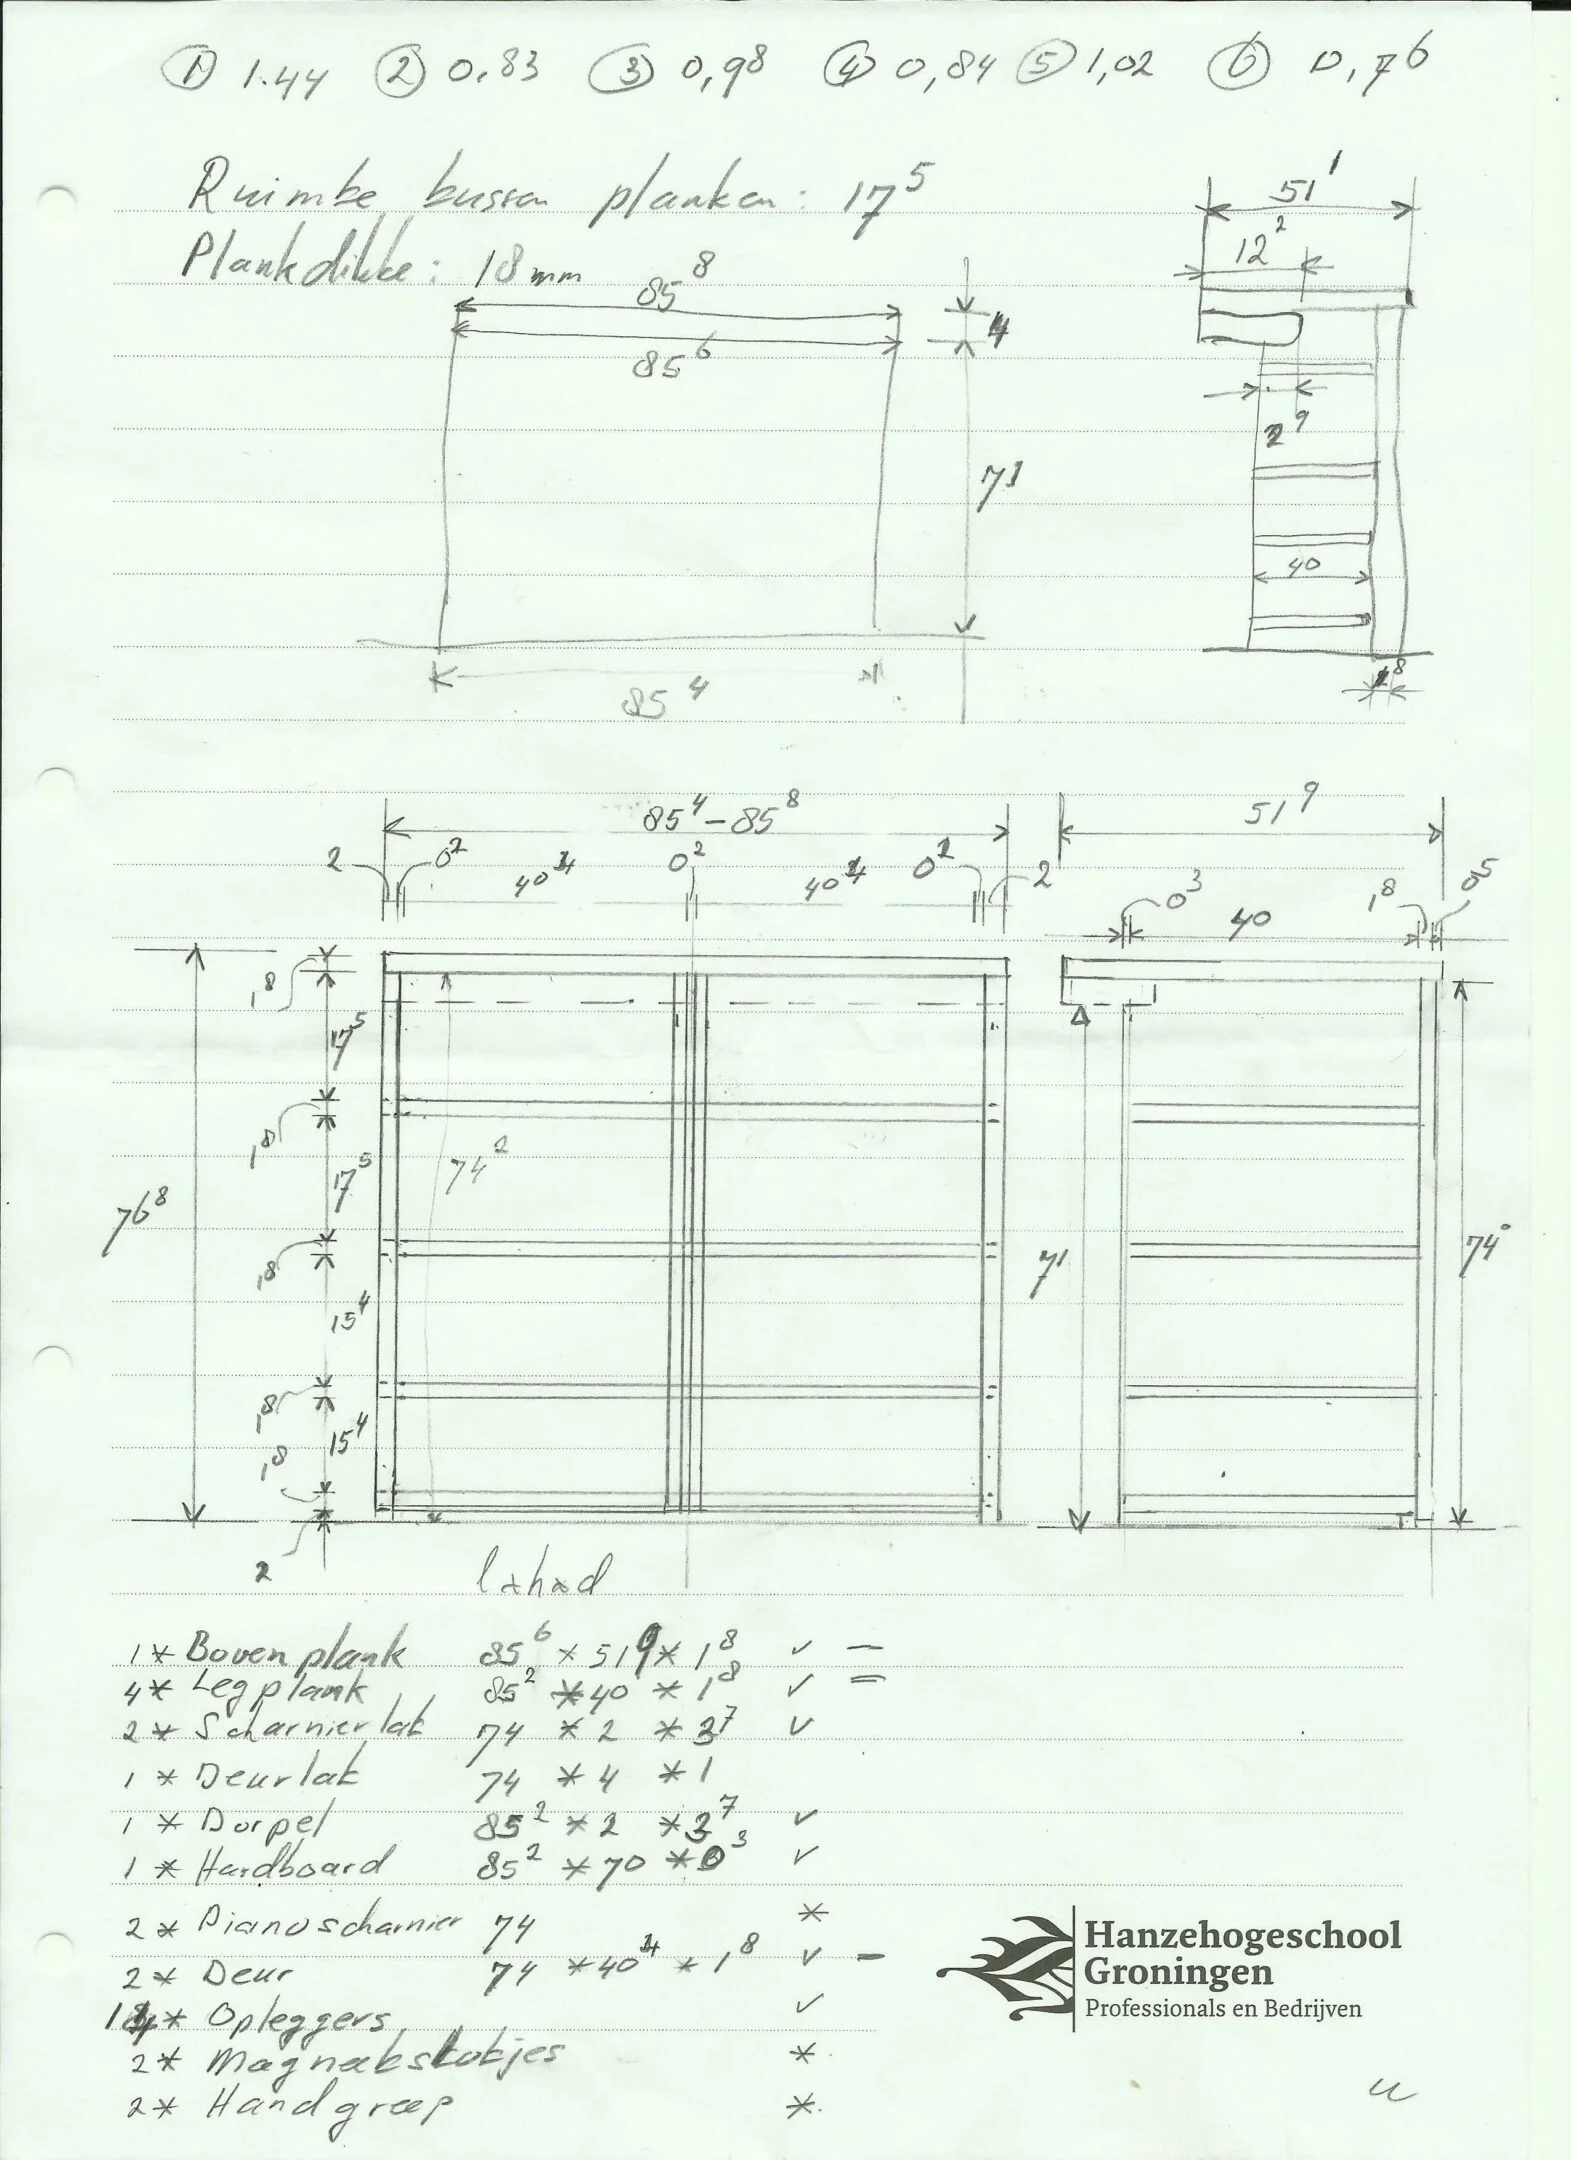 ① 1.44 ② 0,83 ③ 0,98 ④ 0,84 ⑤ 1,02 ⑥ 0,76
Ruimte tussen planken: 17⁵
Plankdikte: 18mm
85⁸
85⁶
4
71
85⁴
51¹
12²
2⁹
40
1⁸
85⁴-85⁸
2 0² 40⁴ 0² 40⁴ 0² 2
51⁹
0³ 40 1⁸ 0⁵
76⁸
1⁸
17⁵
1⁸
17⁵
1⁸
15⁴
1⁸
15⁴
1⁸
2
74²
71
74⁰
l*h*d
1* Bovenplank 85⁶ * 51⁹ * 1⁸ ✓ –
4* Legplank 85² * 40 * 1⁸ ✓ =
2* Scharnierlat 74 * 2 * 3⁷ ✓
1 * Deurlat 74 * 4 * 1
1 * Dorpel 85² * 2 * 3⁷ ✓
1 * Hardboard 85² * 70 * 0³ ✓
2 * Pianoscharnier 74 *
2* Deur 74 * 40⁴ * 1⁸ ✓ –
* Opleggers ✓
2* Magneetslotjes *
2* Handgreep *
Hanzehogeschool
Groningen
Professionals en Bedrijven